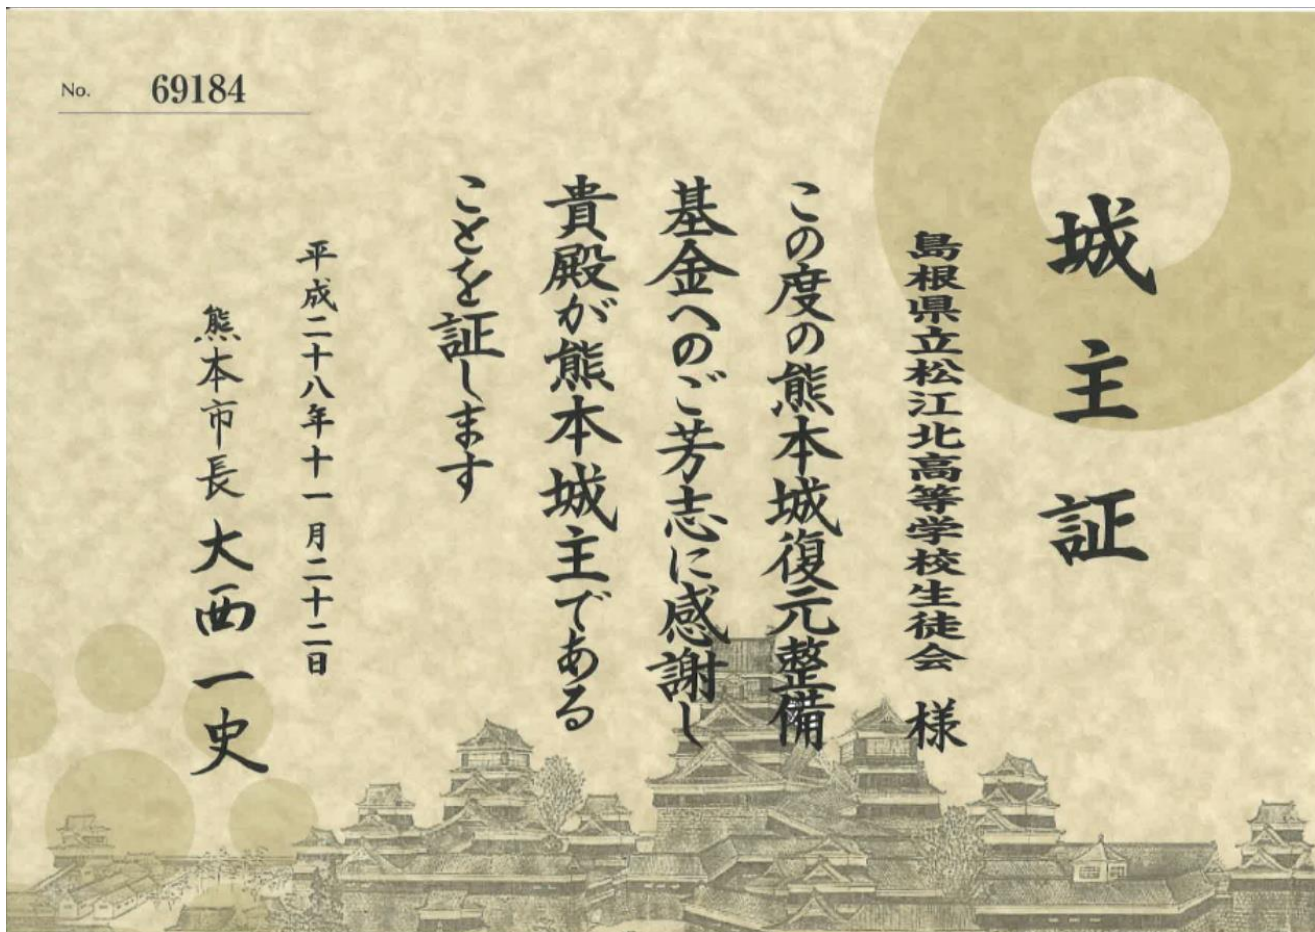 No. 69184
城主証
島根県立松江北高等学校生徒会 様
この度の熊本城復元整備
基金へのご芳志に感謝し
貴殿が熊本城主である
ことを証します
平成二十八年十一月二十二日
熊本市長 大西一史